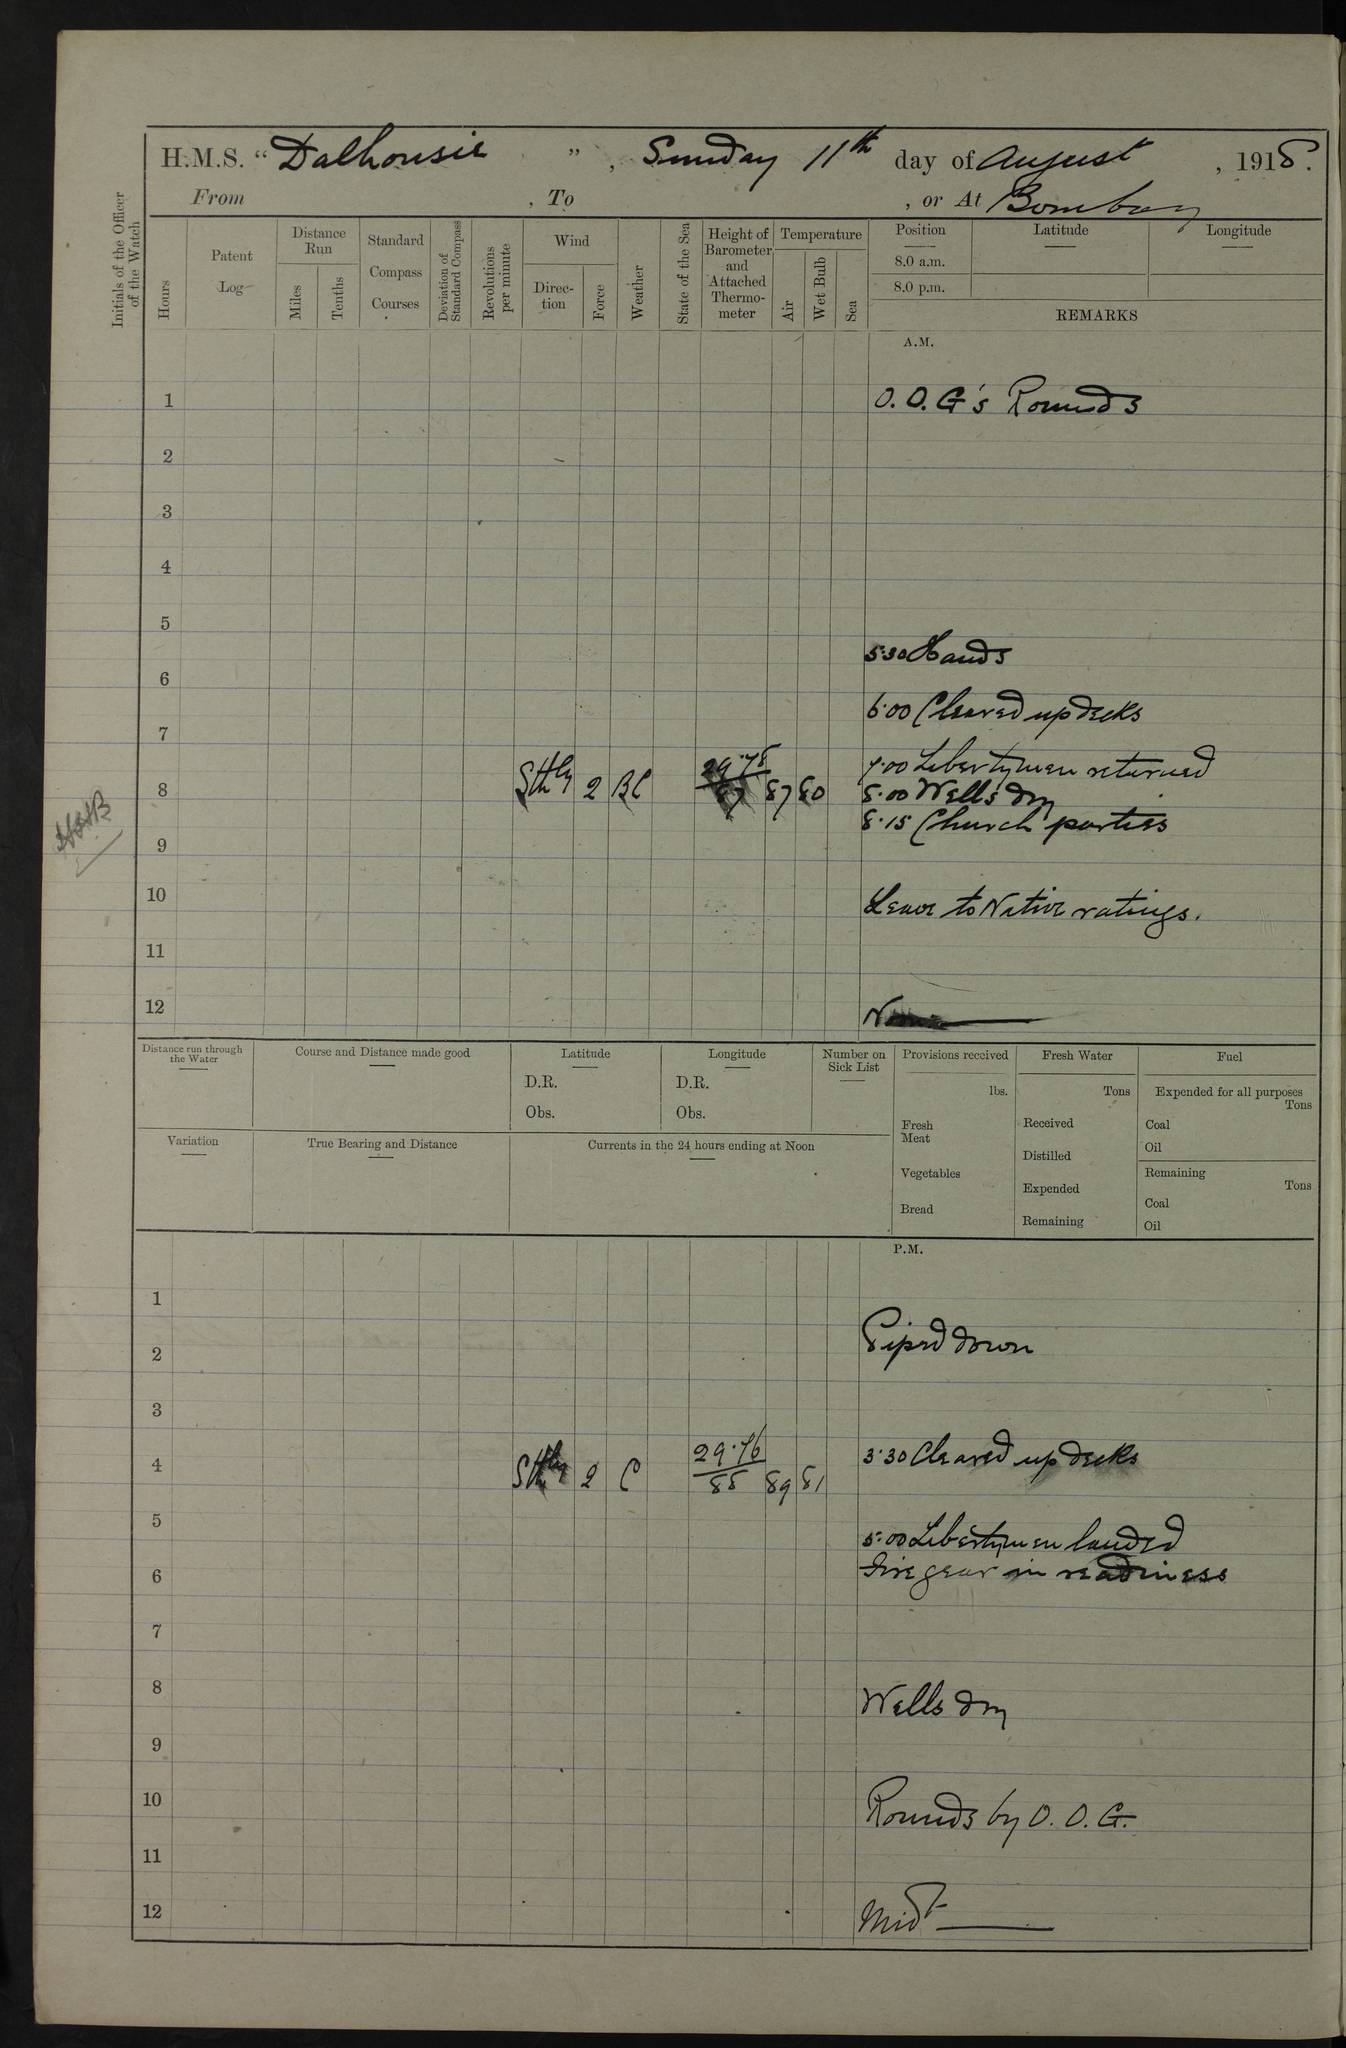 H.M.S. "Dalhousie", Sunday 11th day of August, 1918.
From , To , or At Bombay
Initials of the Officer of the Watch
Hours
Patent Log
Distance Run
Miles
Tenths
Standard Compass Courses
Deviation of Standard Compass
Revolutions per minute
Wind
Direction
Force
Weather
State of the Sea
Height of Barometer and Attached Thermometer
Temperature
Air
Wet Bulb
Sea
Position
8.0 a.m.
8.0 p.m.
Latitude
Longitude
REMARKS
A.M.
1 O.O.G's Rounds
2
3
4
5
5.30 Hands
6
6.00 Cleared up decks
7
7.00 Libertymen returned
8 Sthly 2 BC 29.78 87 87 80 8.00 Wells dry
8.15 Church parties
9
10 Leave to Native ratings.
11
12 Noon
Distance run through the Water
Course and Distance made good
Latitude
D.R.
Obs.
Longitude
D.R.
Obs.
Number on Sick List
Provisions received
lbs.
Fresh Meat
Vegetables
Bread
Fresh Water
Tons
Received
Distilled
Expended
Remaining
Fuel
Expended for all purposes
Tons
Coal
Oil
Remaining
Tons
Coal
Oil
Variation
True Bearing and Distance
Currents in the 24 hours ending at Noon
P.M.
1
2 Piped down
3
4 Sthly 2 C 29.76 88 89 81 3.30 Cleared up decks
5
5.00 Libertymen landed
6 Fire gear in readiness
7
8 Wells dry
9
10 Rounds by O.O.G.
11
12 Midt